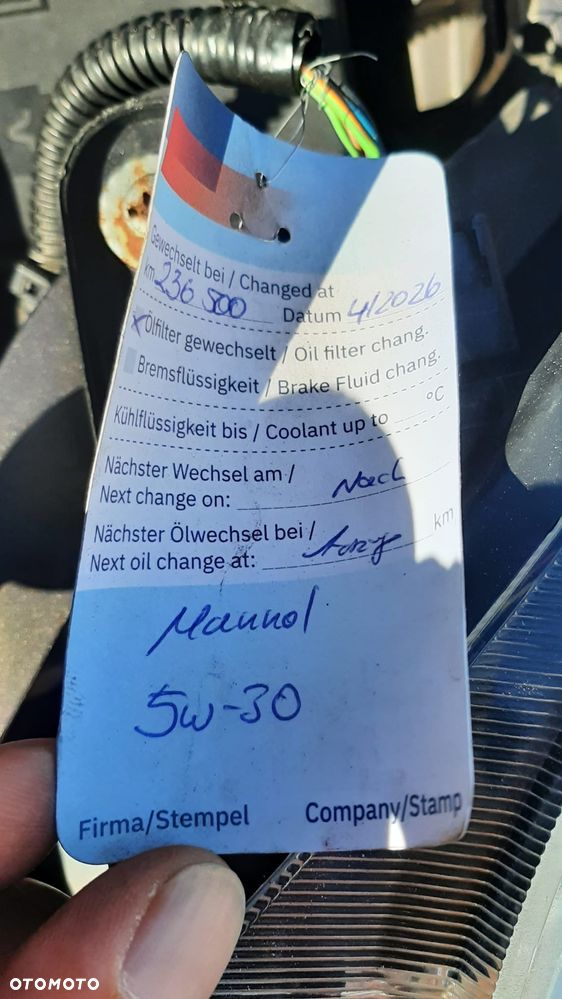 Gewechselt bei / Changed at
km 236 500 Datum 4/2026
x Ölfilter gewechselt / Oil filter chang.
Bremsflüssigkeit / Brake Fluid chang.
Kühlflüssigkeit bis / Coolant up to °C
Nächster Wechsel am /
Next change on: Nach
Nächster Ölwechsel bei /
Next oil change at: km
Mannol
5W-30
Firma/Stempel Company/Stamp
OTOMOTO